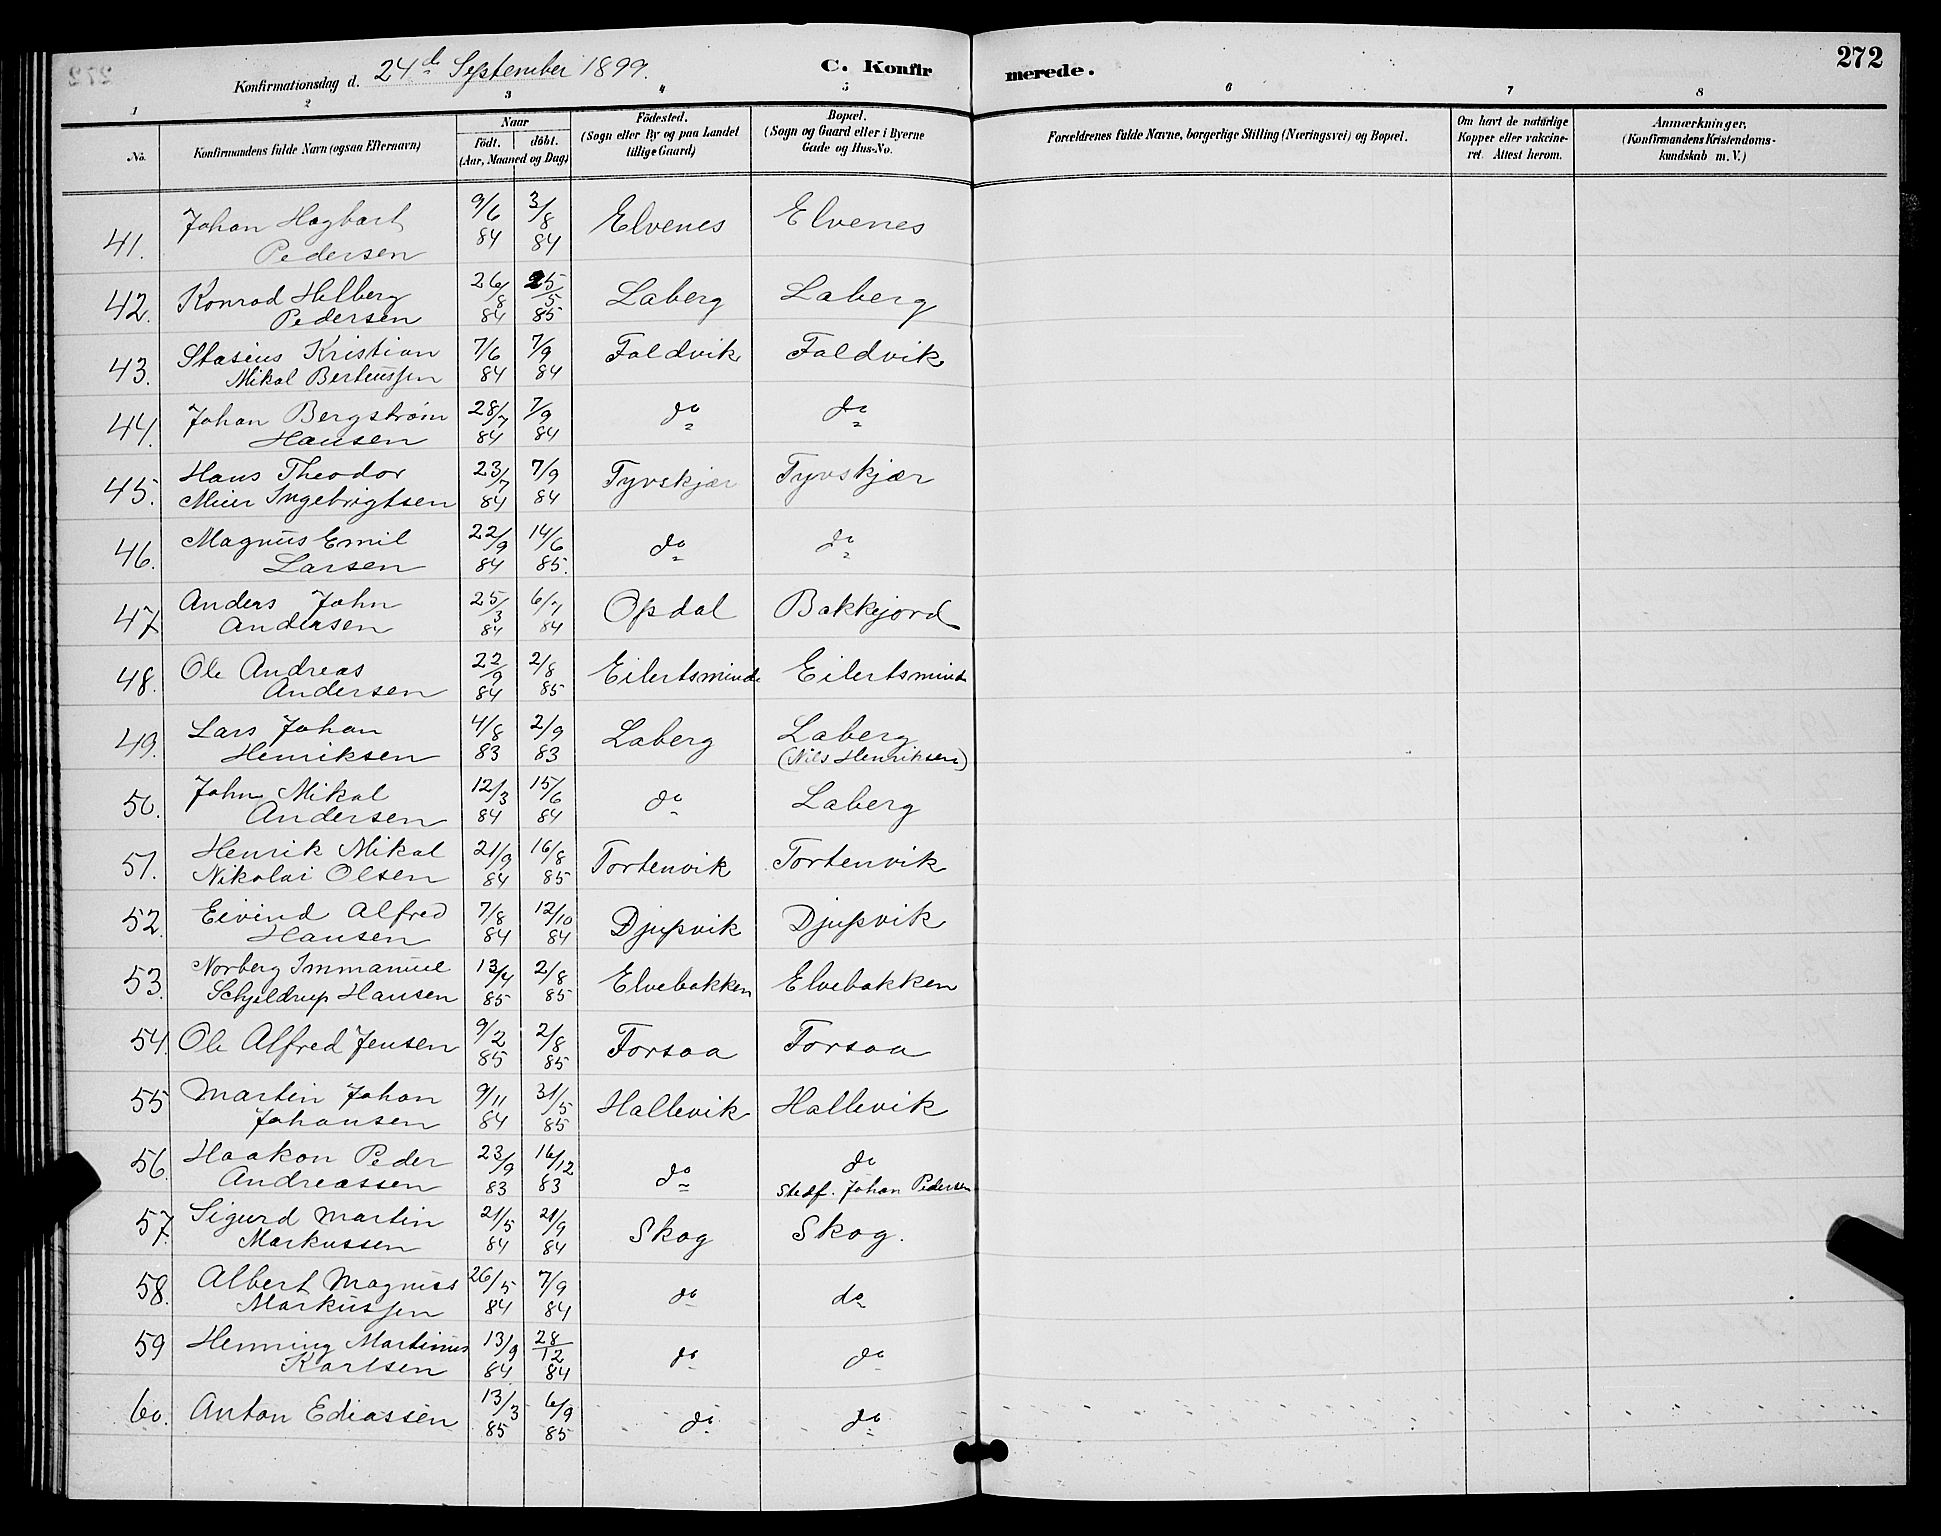 Konfirmationsdag d. 24de September 1899.
C. Konfirmerede.
272
1 2 3 4 5 6 7 8
No.
Konfirmandens fulde Navn (ogsaa Efternavn)
Naar
födt. döbt.
(Aar, Maaned og Dag)
Födested.
(Sogn eller By og paa Landet
tillige Gaard)
Bopæl.
(Sogn og Gaard eller i Byerne
Gade og Hus-No.
Forældrenes fulde Navne, borgerlige Stilling (Næringsvei) og Bopæl.
Om havt de natürlige
Kopper eller vakcine-
ret. Attest herom.
Anmærkninger.
(Konfirmandens Kristendoms-
kundskab m. V.)
41. Johan Hagbart 9/6 3/8 Elvenes Elvenes
Pedersen 84 84
42. Konrad Hilberg 26/8 25/5 Laberg Laberg
Pedersen 84 85
43. Stasius Kristian 7/6 7/9 Foldvik Foldvik
Mikal Berteussen 84 84
44. Johan Bergstrøm 28/7 7/9 do do
Hansen 84 84
45. Hans Theodor 23/7 7/9 Tyvskjær Tyvskjær
Meier Ingebrigtsen 84 84
46. Magnus Emil 22/9 14/6 do do
Larsen 84 85.
47. Anders John 25/3 6/7 Opdal Bakkejord
Andersen 84 84
48. Ole Andreas 22/9 2/8 Eilertsminde Eilertsminde
Andersen 84 85
49. Lars Johan 4/8 2/9 Laberg Laberg
Henriksen 83 83 (Nils Henriksen)
50. John Mikal 12/3 15/6 do Laberg
Andersen 84 84
51. Henrik Mikal 21/9 16/8 Tortenvik Tortenvik
Nikolai Olsen 84 85
52. Eivind Alfred 7/8 12/10 Djupvik Djupvik
Hansen 84 84
53. Norberg Immanuel 13/4 2/8 Elvebakken Elvebakken
Schjeldrup Hansen 85 85
54. Ole Alfred Jensen 9/2 2/8 Forsaa Forsaa
85 85
55 Martin Johan 9/11 31/5 Hallevik Hallevik
Johansen 84 85
56. Haakon Peder 23/9 16/12 do do
Andreassen 83 83 Stedf. Johan Pedersen
57. Sigurd Martin 21/5 21/9 Skog Skog.
Markussen 84 84
58. Albert Magnus 26/5 7/9 do do
Markussen 84 84
59 Henning Martinus 13/9 28/12 do do
Karlsen 84 84
60. Anton Ediassen 13/3 6/9 do do
85 85